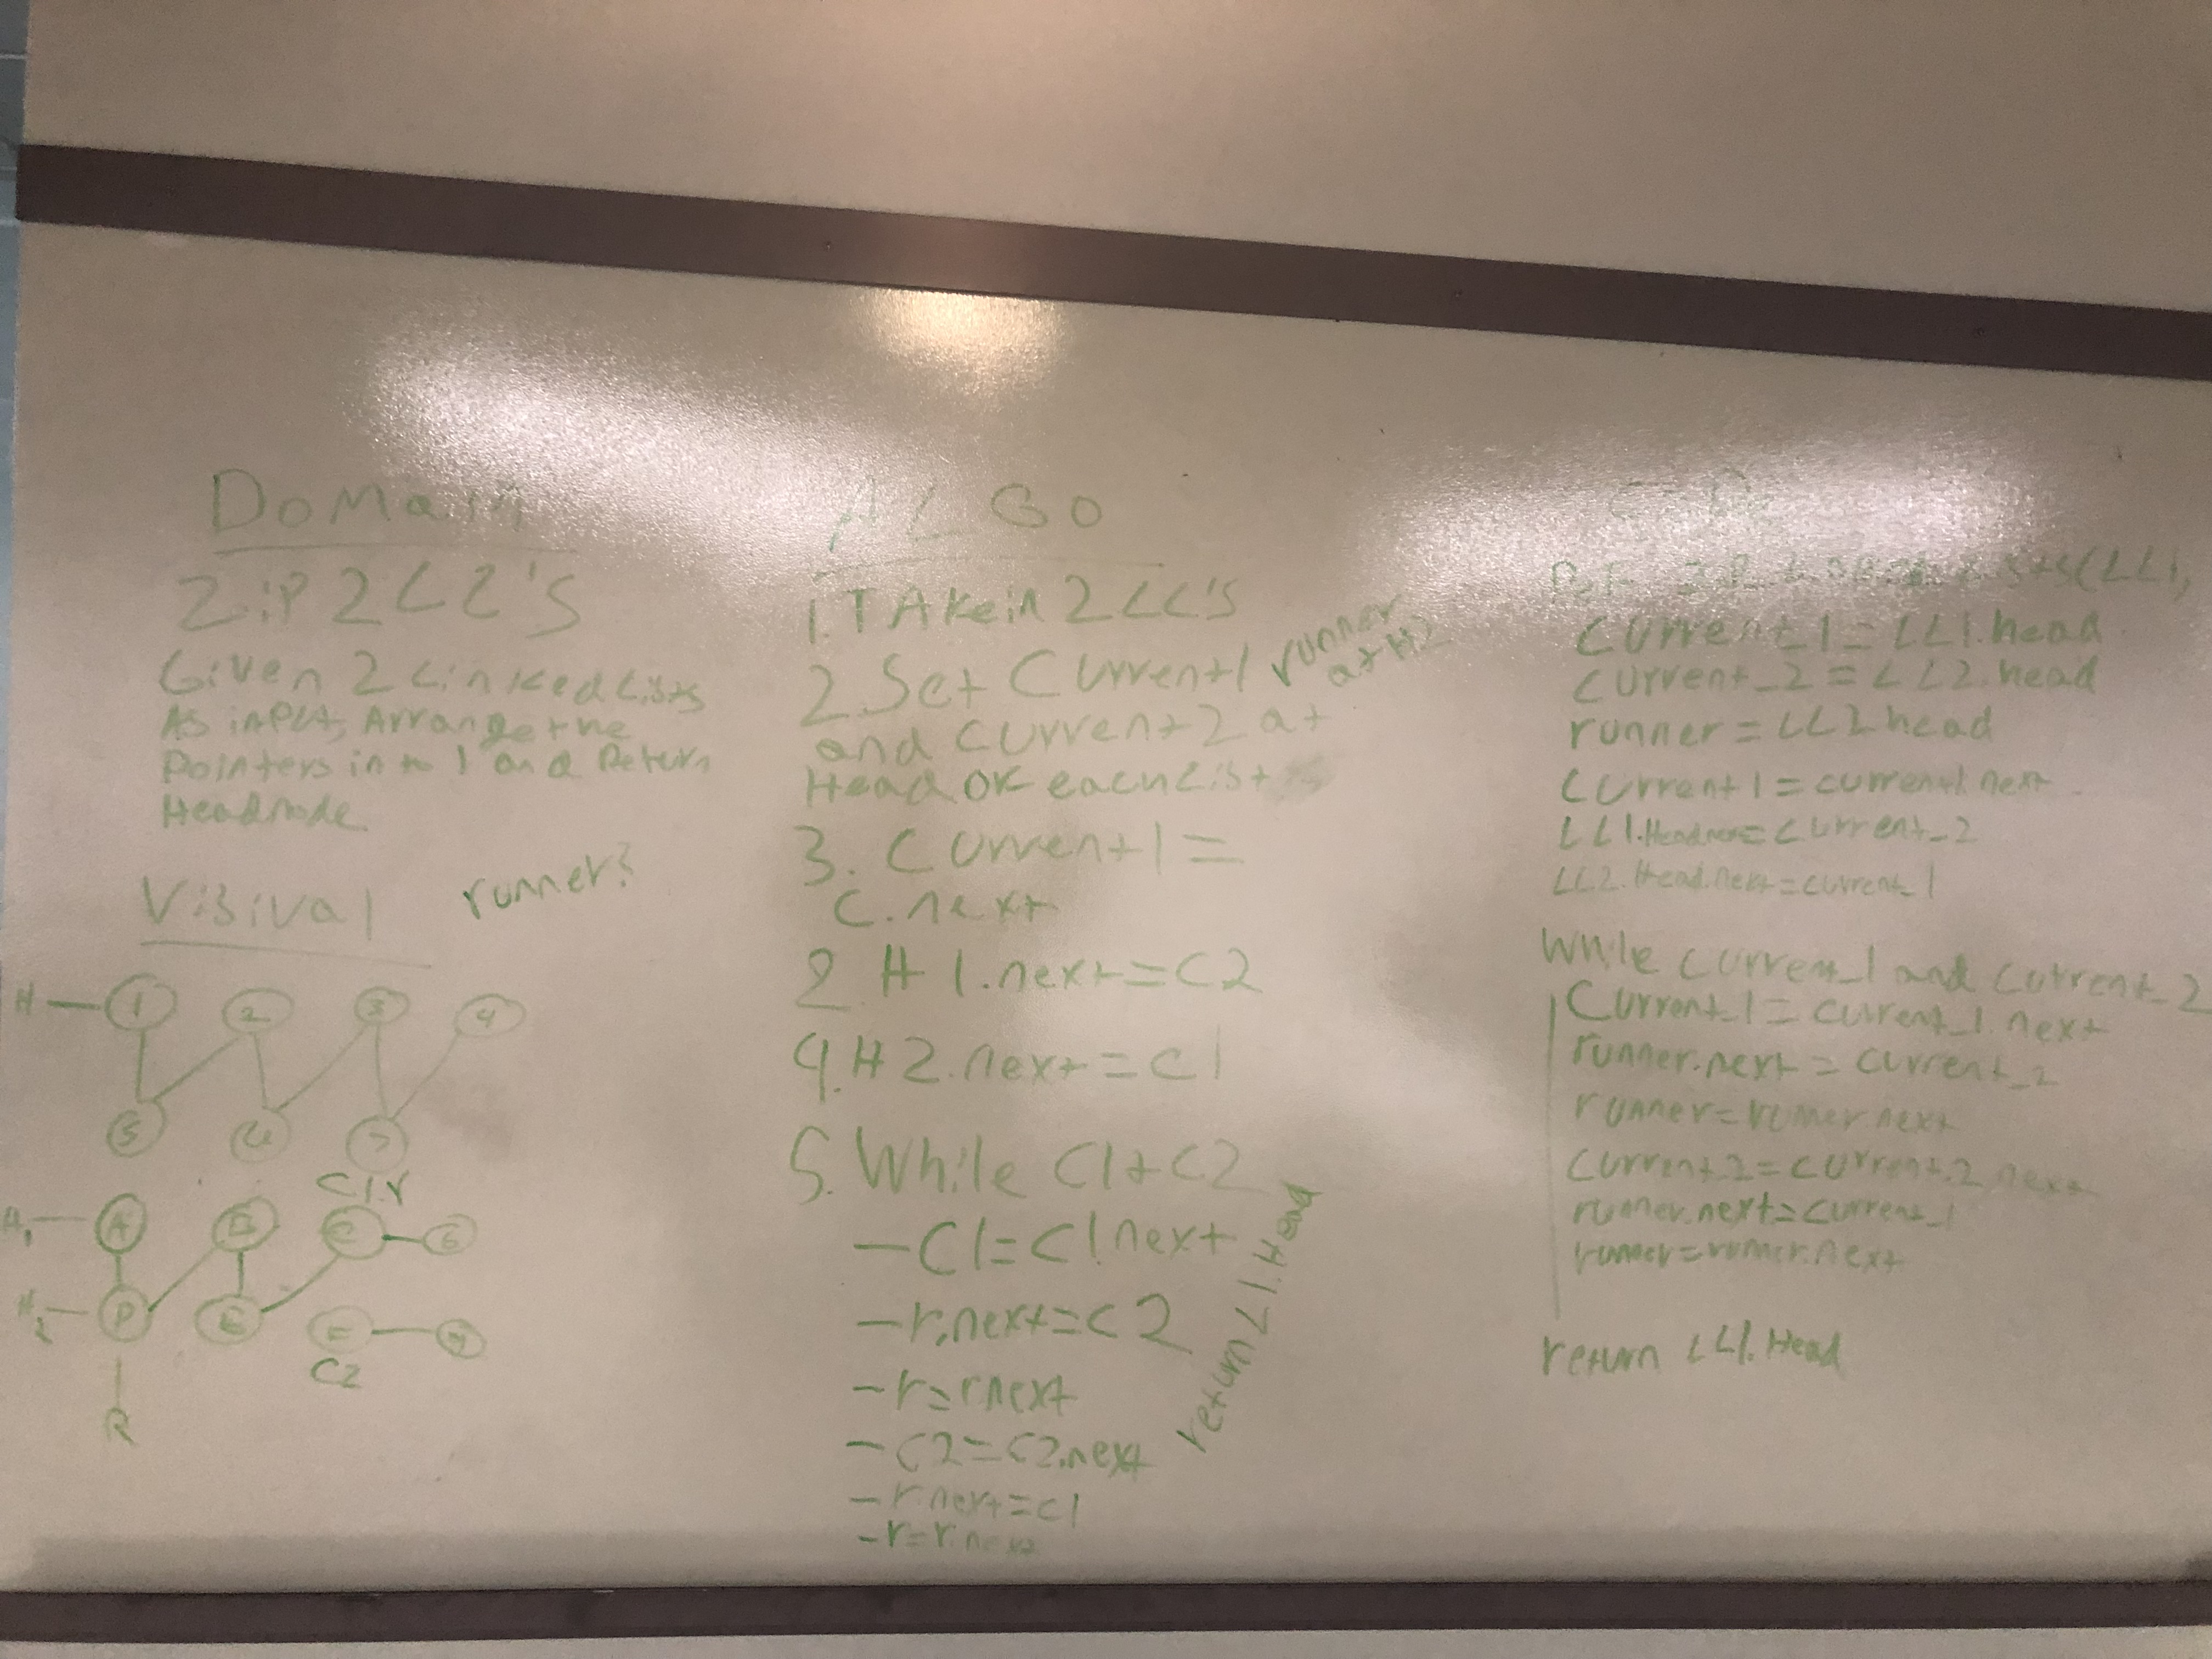 DoMain
ZiP 2 LL's
Given 2 Linked Lists
As input, Arrange the
Pointers in to 1 and Return
Headnode
Visival
runner?
H 1 2 3 4
5 6 7
C1 r
H1 A B C G
H2 D E F
C2
R
ALGO
1. TAke in 2 LL's
2. Set Current1 runner at H2
and current2 at
Head OF each List
3. Current1 =
C.next
2. H1.next=C2
4. H2.next=C1
5. While C1+C2
-C1=C1.next
-r.next=C2
-r=rnext
-C2=C2.next
-r.next=C1
-r=r.next
return L1.Head
(LL1,
Current_1=LL1.head
Current_2=LL2.head
runner=LL2head
Current1=current1.next
LL1.Head =Current_2
LL2.Head.next=current_1
While current_1 and current_2
Current_1=current_1.next
runner.next=current_2
runner=runner.next
Current.2=current.2.next
runner.next=current_1
runner=runner.next
return LL1.Head